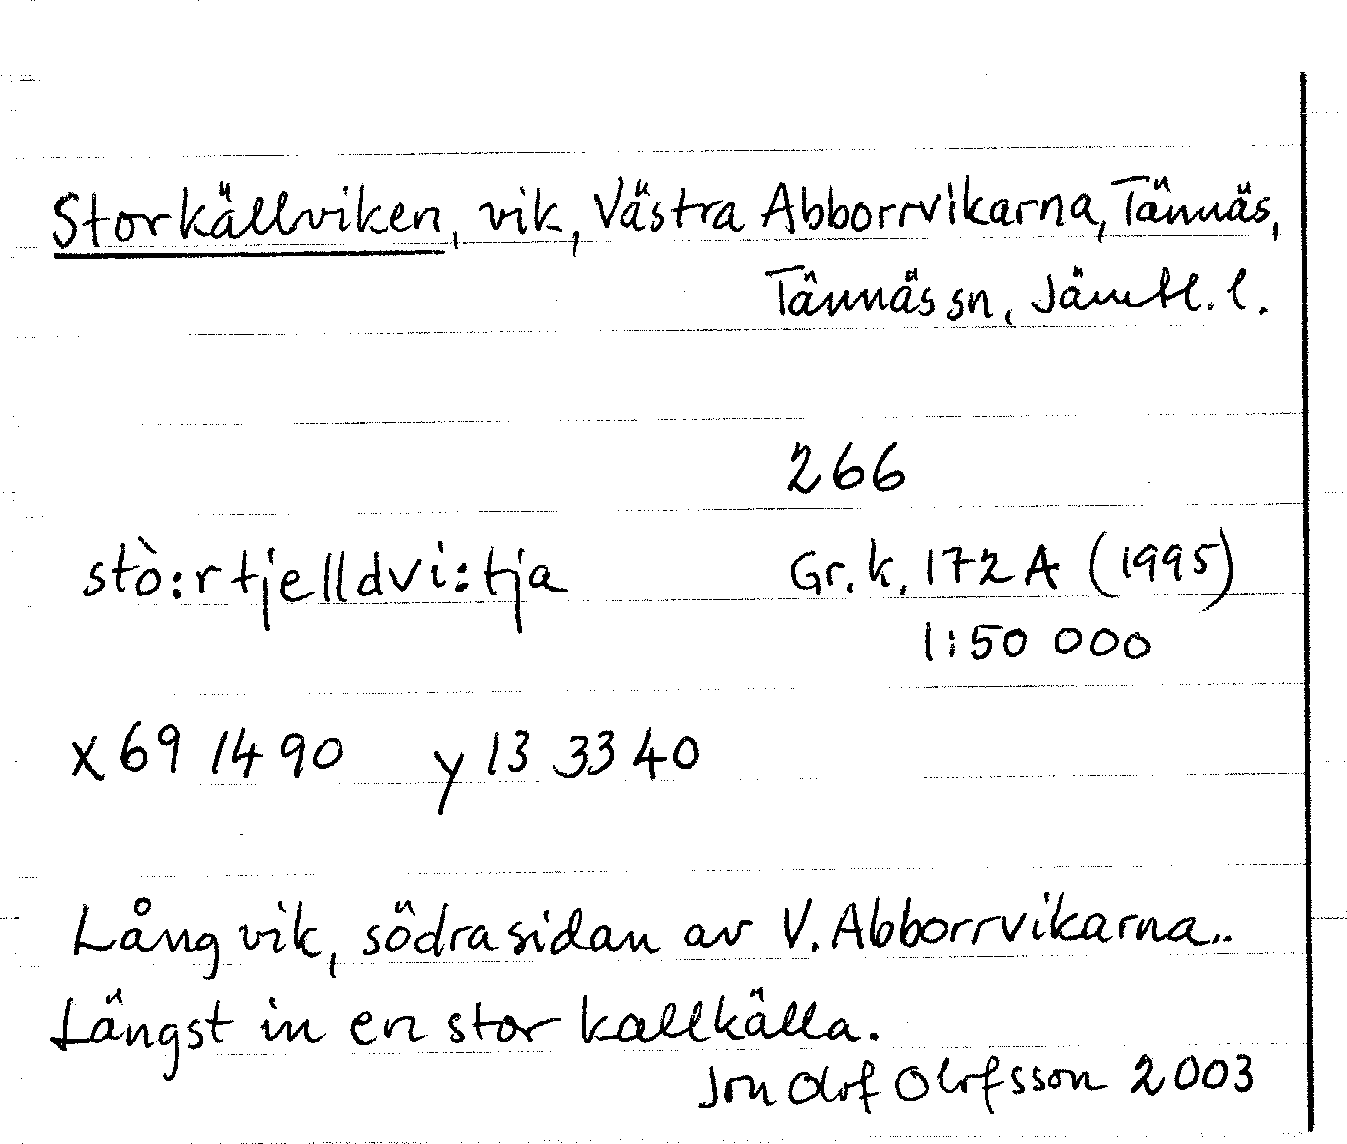 Storkällviken, vik, Västra Abborrvikarna, Tännäs,
Tännäs sn, Jämtl. l.
266
stò:rtjelldvi:tja
Gr. k. 172 A (1995)
1:50 000
x 69 14 90 y 13 33 40
Lång vik, södra sidan av V. Abborrvikarna..
Längst in en stor kallkälla.
Jon Olof Olofsson 2003